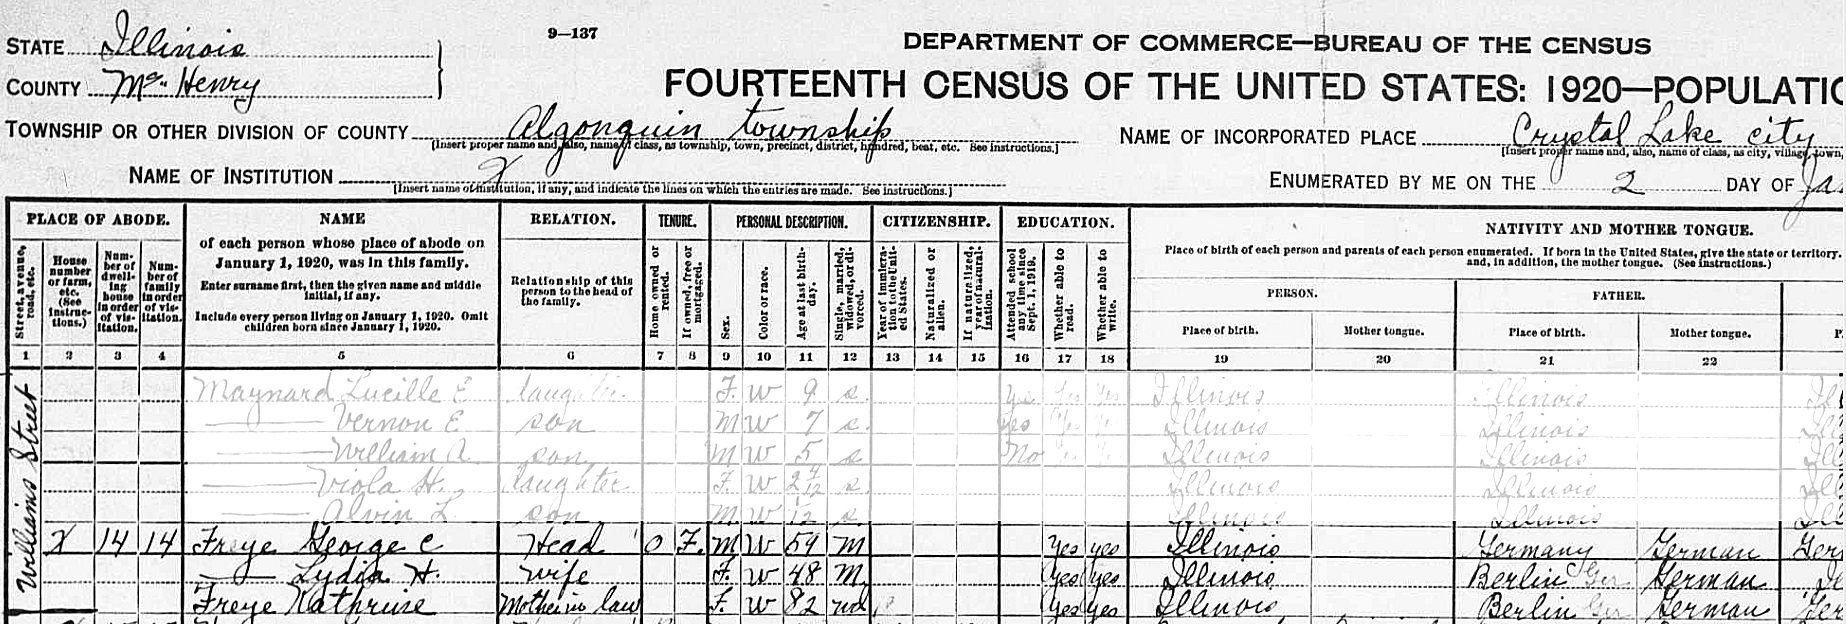 9—137
STATE Illinois
DEPARTMENT OF COMMERCE—BUREAU OF THE CENSUS
COUNTY Mc Henry
FOURTEENTH CENSUS OF THE UNITED STATES: 1920—POPULATIO
TOWNSHIP OR OTHER DIVISION OF COUNTY Algonquin township
NAME OF INCORPORATED PLACE Crystal Lake city
[Insert proper name and, also, name of class, as township, town, precinct, district, hundred, beat, etc. See instructions.]
[Insert proper name and, also, name of class, as city, village, town,
NAME OF INSTITUTION X
[Insert name of institution, if any, and indicate the lines on which the entries are made. See instructions.]
ENUMERATED BY ME ON THE 2 DAY OF Ja
PLACE OF ABODE. NAME RELATION. TENURE. PERSONAL DESCRIPTION. CITIZENSHIP. EDUCATION. NATIVITY AND MOTHER TONGUE.
Street, avenue, road, etc.
House number or farm, etc. (See instructions.)
Number of dwelling house in order of visitation.
Number of family in order of visitation.
of each person whose place of abode on
January 1, 1920, was in this family.
Enter surname first, then the given name and middle
initial, if any.
Include every person living on January 1, 1920. Omit
children born since January 1, 1920.
Relationship of this
person to the head of
the family.
Home owned or rented.
If owned, free or mortgaged.
Sex.
Color or race.
Age at last birthday.
Single, married, widowed, or divorced.
Year of immigration to the United States.
Naturalized or alien.
If naturalized, year of naturalization.
Attended school any time since Sept. 1, 1919.
Whether able to read.
Whether able to write.
Place of birth of each person and parents of each person enumerated. If born in the United States, give the state or territory.
and, in addition, the mother tongue. (See instructions.)
PERSON. FATHER.
Place of birth. Mother tongue. Place of birth. Mother tongue. P
1 2 3 4 5 6 7 8 9 10 11 12 13 14 15 16 17 18 19 20 21 22
Williams Street
Maynard Lucille E daughter F. W 9 s. Yes Yes Yes Illinois Illinois Ill
Vernon E son M W 7 s. Yes Illinois Illinois Ill
William A son M W 5 s No Illinois Illinois Ill
Viola H. daughter F. W 2 4/12 s. Illinois Illinois Ill
Alvin L. son M W s. Illinois Illinois Ill
X 14 14 Freye George C Head O F. M W 54 M Yes yes Illinois Germany German Ger
Lydia H. Wife F. W 48 M Yes yes Illinois Berlin Ger German
Freye Kathrine Mother in law F. W 82 wd Yes yes Illinois Berlin Ger German Ger